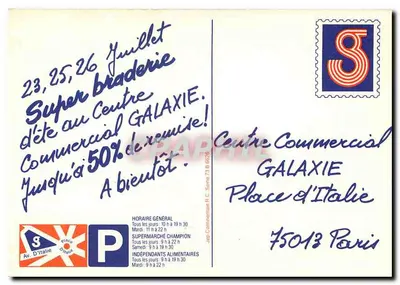 23, 25, 26 Juillet
Super braderie
d'été au Centre
Commercial GALAXIE.
Jusqu'à 50% de remise!
A bientôt!
Centre Commercial
GALAXIE
Place d'Italie
75013 Paris
HORAIRE GÉNÉRAL
Tous les jours : 10 h à 19 h 30
Mardi : 11 h à 22 h
SUPERMARCHÉ CHAMPION
Tous les jours : 9 h à 22 h
Samedi : 9 h à 19 h 30
INDÉPENDANTS ALIMENTAIRES
Tous les jours : 9 h à 19 h 30
Mardi : 9 h à 22 h
Av. D'Italie
P